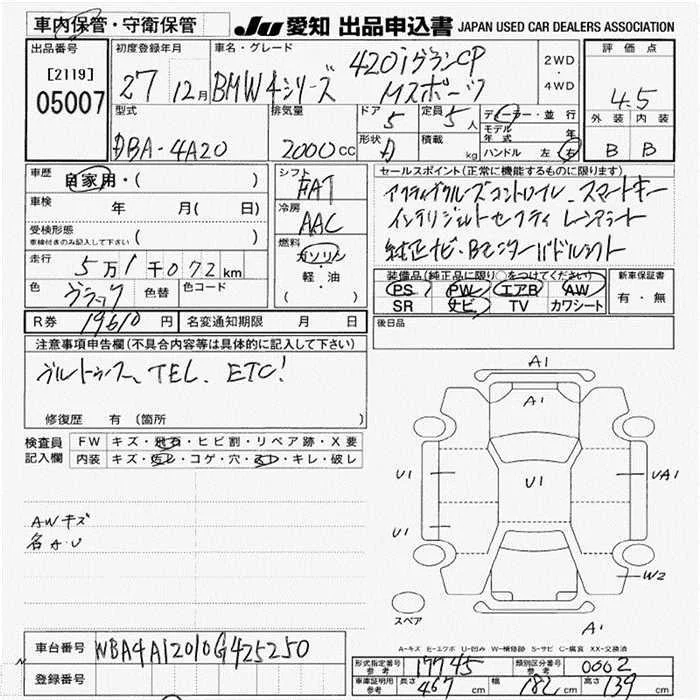 車内保管・守衛保管
JU 愛知 出品申込書 JAPAN USED CAR DEALERS ASSOCIATION
出品番号
[2119]
05007
初度登録年月
27 12月
車名・グレード
BMW 4シリーズ
420iグランCP
Mスポーツ
2WD
・
4WD
評価点
4.5
外装 内装
B B
型式
DBA-4A20
排気量
2000cc
ドア
5
定員
5人
形状
積載
kg
ディーラー・並行
モデル年式 年
ハンドル 左 右
車歴
自家用・( )
車検 年 月( 日)
受検形態
車検付きのみ記入して下さい ( )
走行
5万1千072km
色
ブラック
色替
色コード
R券 19610円
名変通知期限 月 日
シフト
FAT
冷房
AAC
燃料
ガソリン
軽・油
( )
セールスポイント(正常に機能するものに限ります)
アクティブクルーズコントロール スマートキー
インテリジェントセーフティ レーンアラート
純正ナビ・Bモニター パドルシフト
装備品(純正品に限り○をつけてください)
PS PW エアB AW
SR ナビ TV カワシート
新車保証書
有・無
後日品
注意事項申告欄(不具合内容等は具体的に記入して下さい)
ブルートゥース、TEL、ETC!
修復歴 有 (箇所 )
検査員記入欄
FW キズ・飛石・ヒビ割・リペア跡・X要
内装 キズ・汚レ・コゲ・穴・スレ・キレ・破レ
AWキズ
各A・U
A1
A1
U1
U1
UA1
U1
W2
A1
スペア
A-キズ E-エクボ U-凹み W-補修跡 S-サビ C-腐食 XX-交換済
車台番号 WBA4A12010G425250
登録番号
形式指定番号 参考 17745
類別区分番号 参考 0002
車庫証明用 参考 長さ 467cm 幅 182cm 高さ 139cm